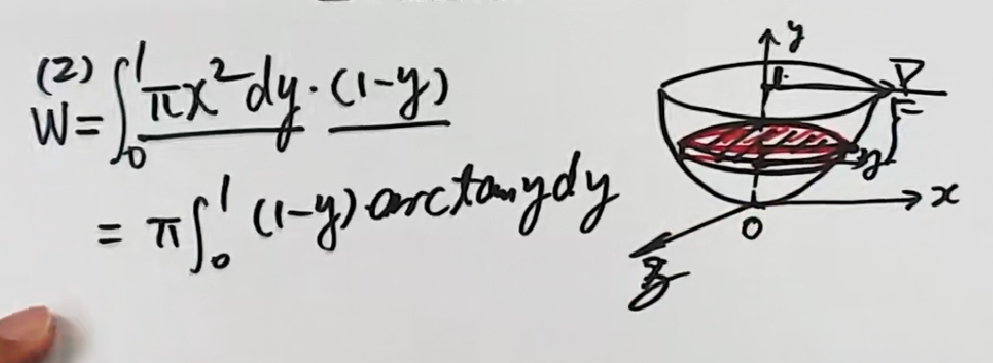 (2)
W=∫₀¹ πx²dy·(1-y)
= π∫₀¹ (1-y)·arctanydy
y
1
y
x
O
z